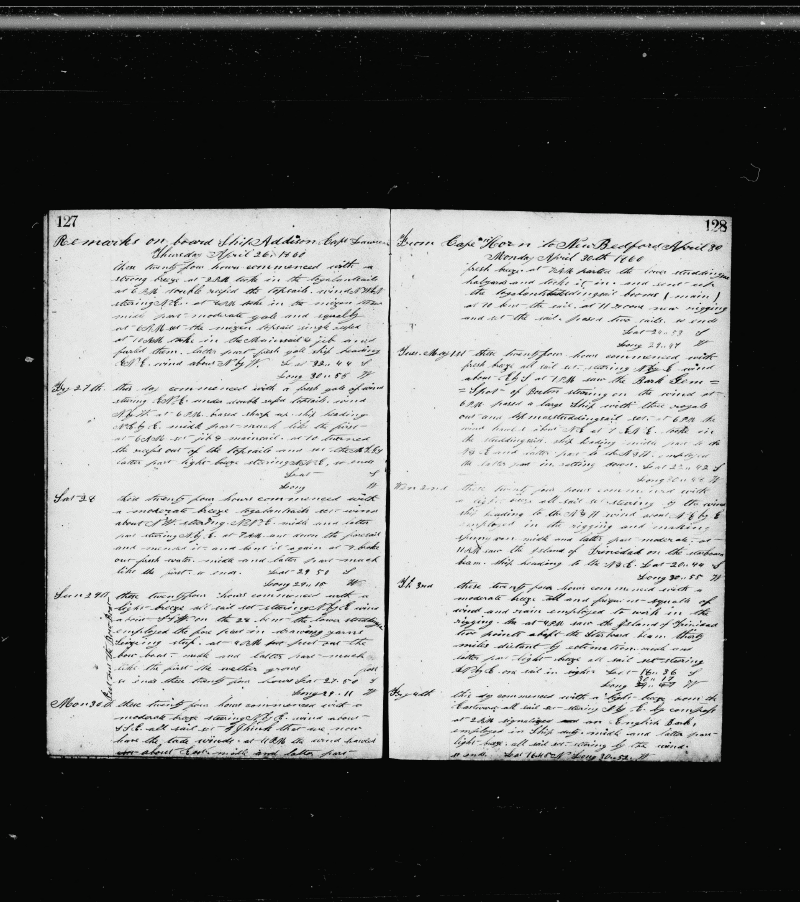 127
Remarks on board Ship Addison Capt Lawrence
Thursday April 26. 1860
these twenty four hours commenced with a
strong breeze at 2 P.M. took in the topgalantsails
at 6 P.M. double reefed the topsails. wind
steering N.E. at took in the mizen topsail
midle part moderate gale and squally
at 6 A.M. set the mizen topsail single reefed
at 10 A.M. take in the Mainsail & jib and
furled them. latter part fresh gale ship heading
E.N.E. wind about N by W. Lat 32.. 44 S
Long 30.. 55 W
Fry 27th this day commenced with a fresh gale of wind
steering under double reefed topsails. wind
at 6 P.M. braced sharp up. ship heading
N.E. by E. midle part much like the first
at 6 A.M. set jib & mainsail. at 10 turned
the reefs out of the topsails and set the
latter part light breeze steering N.E. so ends
Lat S
Long W
Sat 28 these twenty four hours commenced with
a moderate breeze topgalantsails set wind
about N.W. steering midle and latter
part steering N. by E. at 7 A.M. sent down the foresail
and mended it and bent it again at 9 broke
out fresh water. midle and latter part much
like the first. so ends. Lat 29.. 58 S
Long 29.. 15 W
Sun 29th these twenty four hours commenced with a
light breeze all sail set steering N. by E. wind
about on the 28 bent the lower studdingsail
employed the fore peak in drawing yarns
seizing stuf. at A.M. put out the
bow boat. midle and latter part much
like the first the wether grows
so ends these twenty four hours Lat 27.. 50 S
Long 29.. 11 W
put out the Bow Boat
Mon 30th these twenty four hours commenced with a
moderate breeze steering N. by E. wind about
S.S.E. all sail set I think that we now
have the trade winds. at 4 P.M. the wind hauled
about East. midle and latter part
128
From Cape Horn to New Bedford April 30
Monday April 30th 1860
fresh breeze. at 7 A.M. parted the lower studdingsail
halyard and took it in and sent up
the topgalantstuddingsail booms (main)
at 10 bent the sail. at 11 rove new rigging
and set the sail. passed two sails. so ends
Lat S
Long 29.. 47 W
Tues. May 1st these twenty four hours commenced with
fresh breeze all sail set. steering N. by E. wind
about E by S at 1 P.M. saw the Bark Gem=
of Boston steering on the wind at
6 P.M. passed a large Ship with three royals
out and topmaststuddingsail set. 6 P.M. the
wind hauled about N.E. at 7 took in
the studdingsail. ship heading midle part to the
and latter part to the employed
the latter part in setting down. Lat 22.. 42 S
Long W
Wen 2nd these twenty four hours commenced with
a light breeze all sail set steering by the wind
ship heading to the wind about N.E. by E
employed in the rigging and making
spunyarn. midle and latter part moderate. at
11 A.M. saw the Island of Trinidad on the starboard
beam. ship heading to the Lat 20.. 44 S
Long 30.. 55 W
Th 3rd these twenty four hours commenced with a
moderate breeze all and frequent squalls of
wind and rain employed to work in the
rigging. at 4 P.M. saw the Island of Trinidad
two points abaft the Starboard beam. thirty
miles distant by estimation. midle and
latter part light breeze all sail set steering
N by E. one sail in sight Lat 18.. 36 S
30.. 17
Long W
Fry 4th this day commenced with a light breeze from the
Eastward all sail set steering N by E by compass
at 2 P.M. signalized an English Bark,
employed in Ship midle and latter part
light breeze. all sail set. steering by the wind.
so ends. Lat 16.. 45 Long 30.. 52.. W